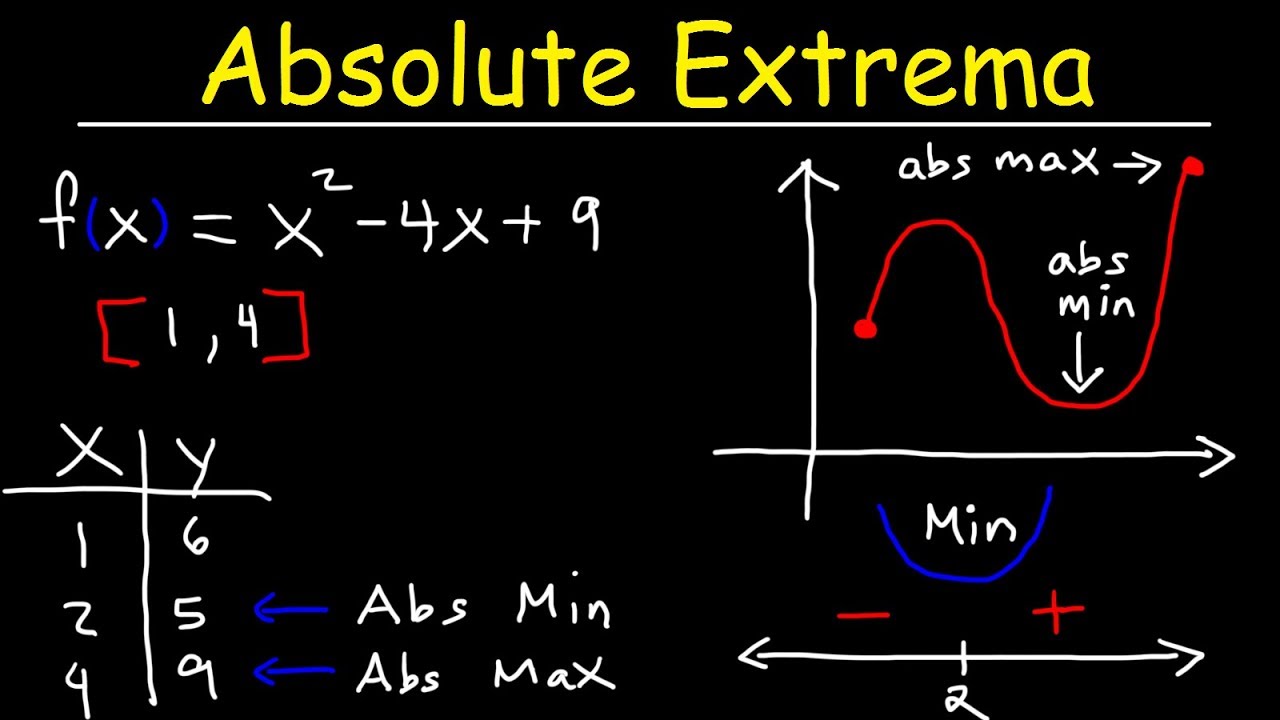 Absolute Extrema
f(x) = x² - 4x + 9
[1, 4]
X Y
1 6
2 5 ← Abs Min
4 9 ← Abs Max
abs max →
abs
min
↓
Min
- +
2